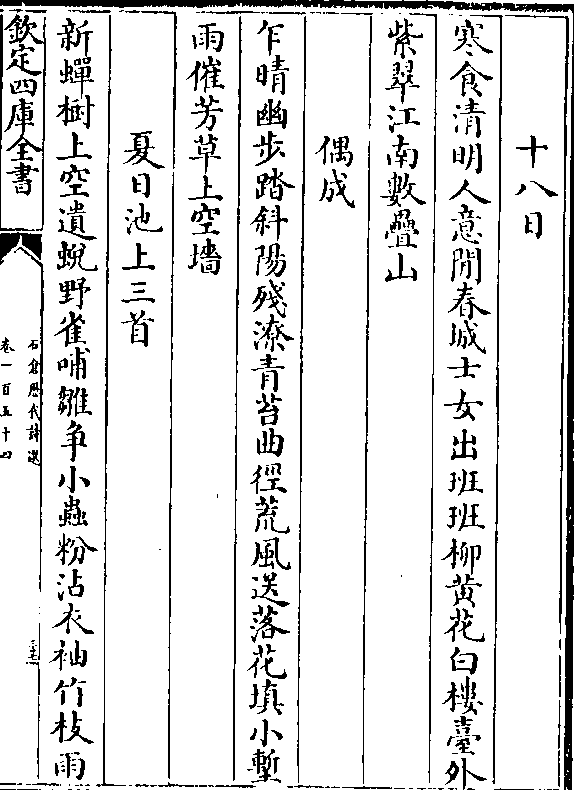 十八日
寒食清明人意閒春城士女出班班柳黄花白樓臺外
紫翠江南數疊山
偶成
乍晴幽步踏斜陽殘潦青苔曲徑荒風送落花填小塹
雨催芳草上空墻
夏日池上三首
新蟬樹上空遺蛻野雀哺雛争小蟲粉沾衣袖竹枝雨
欽定四庫全書
石倉歷代詩選
卷一百五十四